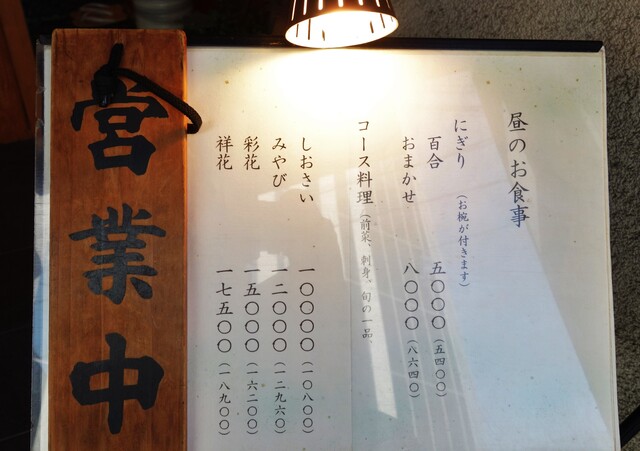 昼のお食事
にぎり (お椀が付きます)
百合 五〇〇〇(五四〇〇)
おまかせ 八〇〇〇(八六四〇)
コース料理(前菜、刺身、旬の一品、
しおさい 一〇〇〇〇(一〇八〇〇)
みやび 一二〇〇〇(一二九六〇)
彩花 一五〇〇〇(一六二〇〇)
祥花 一七五〇〇(一八九〇〇)
営業中